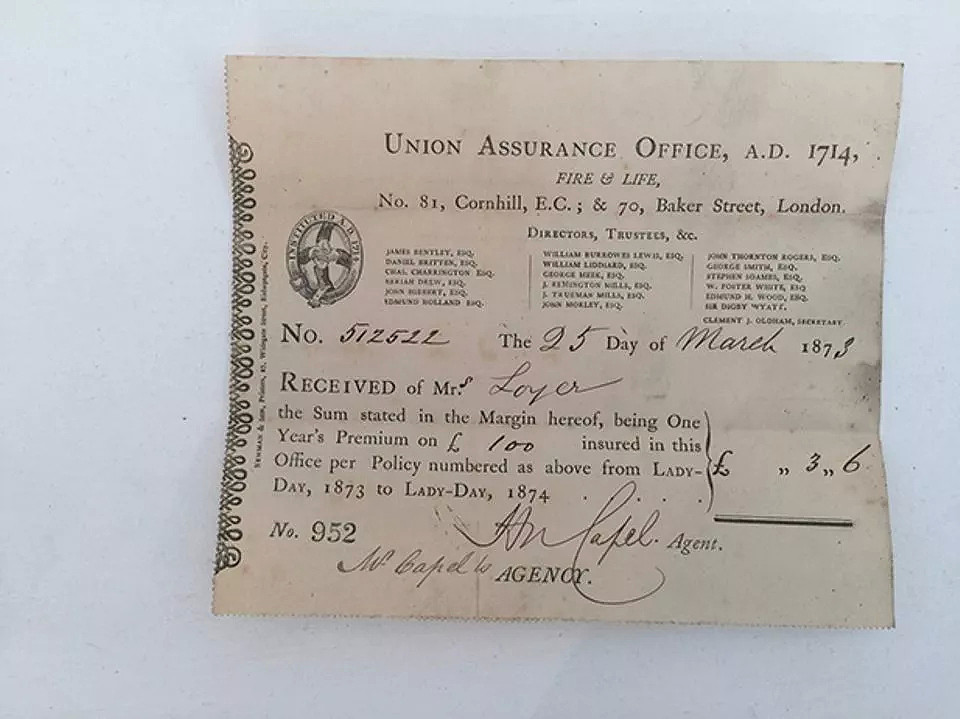 UNION ASSURANCE OFFICE, A.D. 1714,
FIRE & LIFE,
No. 81, Cornhill, E.C.; & 70, Baker Street, London.
INSTITUTED A.D. 1714
DIRECTORS, TRUSTEES, &c.
JAMES BENTLEY, ESQ.
DANIEL BRITTEN, ESQ.
CHAS. CHARRINGTON ESQ.
BERIAH DREW, ESQ.
JOHN HIBBERT, ESQ.
EDMUND HOLLAND ESQ.
WILLIAM BURROWES LEWIS, ESQ.
WILLIAM LIDDIARD, ESQ.
GEORGE MEEK, ESQ.
J. REMINGTON MILLS, ESQ.
J. TRUEMAN MILLS, ESQ.
JOHN MORLEY, ESQ.
JOHN THORNTON ROGERS, ESQ.
GEORGE SMITH, ESQ.
STEPHEN SOAMES, ESQ.
W. FOSTER WHITE, ESQ
EDMUND H. WOOD, ESQ.
SIR DIGBY WYATT.
CLEMENT J. OLDHAM, SECRETARY
No. 512522 The 25 Day of March 1873
RECEIVED of Mrs Loyer
the Sum stated in the Margin hereof, being One
Year's Premium on £ 100 insured in this
Office per Policy numbered as above from LADY-
DAY, 1873 to LADY-DAY, 1874 . . . .
£ „ 3 „ 6
No. 952
Capel. Agent.
Mr Capel's AGENCY.
NEWMAN & Printers, Widegate Street, Bishopsgate, City.